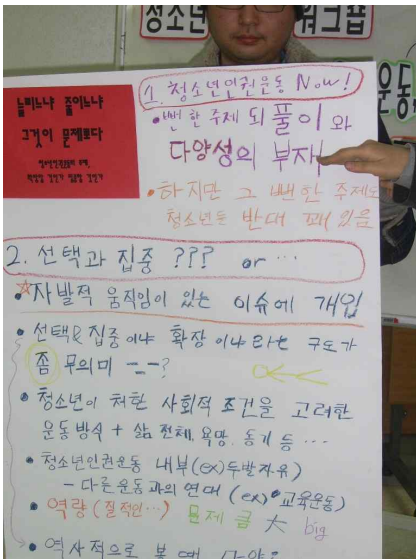 청소년 워크숍
운동
늘리느냐 줄이느냐
그것이 문제로다
1. 청소년인권운동 Now!
• 뻔한 주제 되풀이와
다양성의 부재
• 하지만 그 뻔한 주제도
청소년들 반대 꽤 있음
2. 선택과 집중 ??? or …
☆ • 자발적 움직임이 있는 이슈에 개입
• 선택&집중이냐 확장이냐라는 구도가
좀 무의미 --?
• 청소년이 처한 사회적 조건을 고려한
운동방식 + 삶 전체, 욕망, 동기 등 …
• 청소년인권운동 내부(ex)두발자유)
- 다른운동과의 연대 (ex) 교육운동)
• 역량(질적인…) 문제 큼 大 big
• 역사적으로